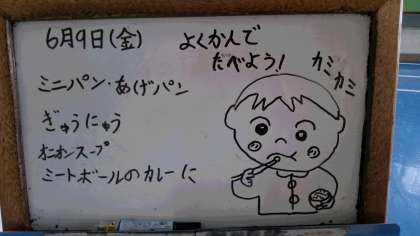 6月9日(金)
よくかんで
たべよう!
カミカミ
ミニパン・あげパン
ぎゅうにゅう
オニオンスープ
ミートボールのカレーに